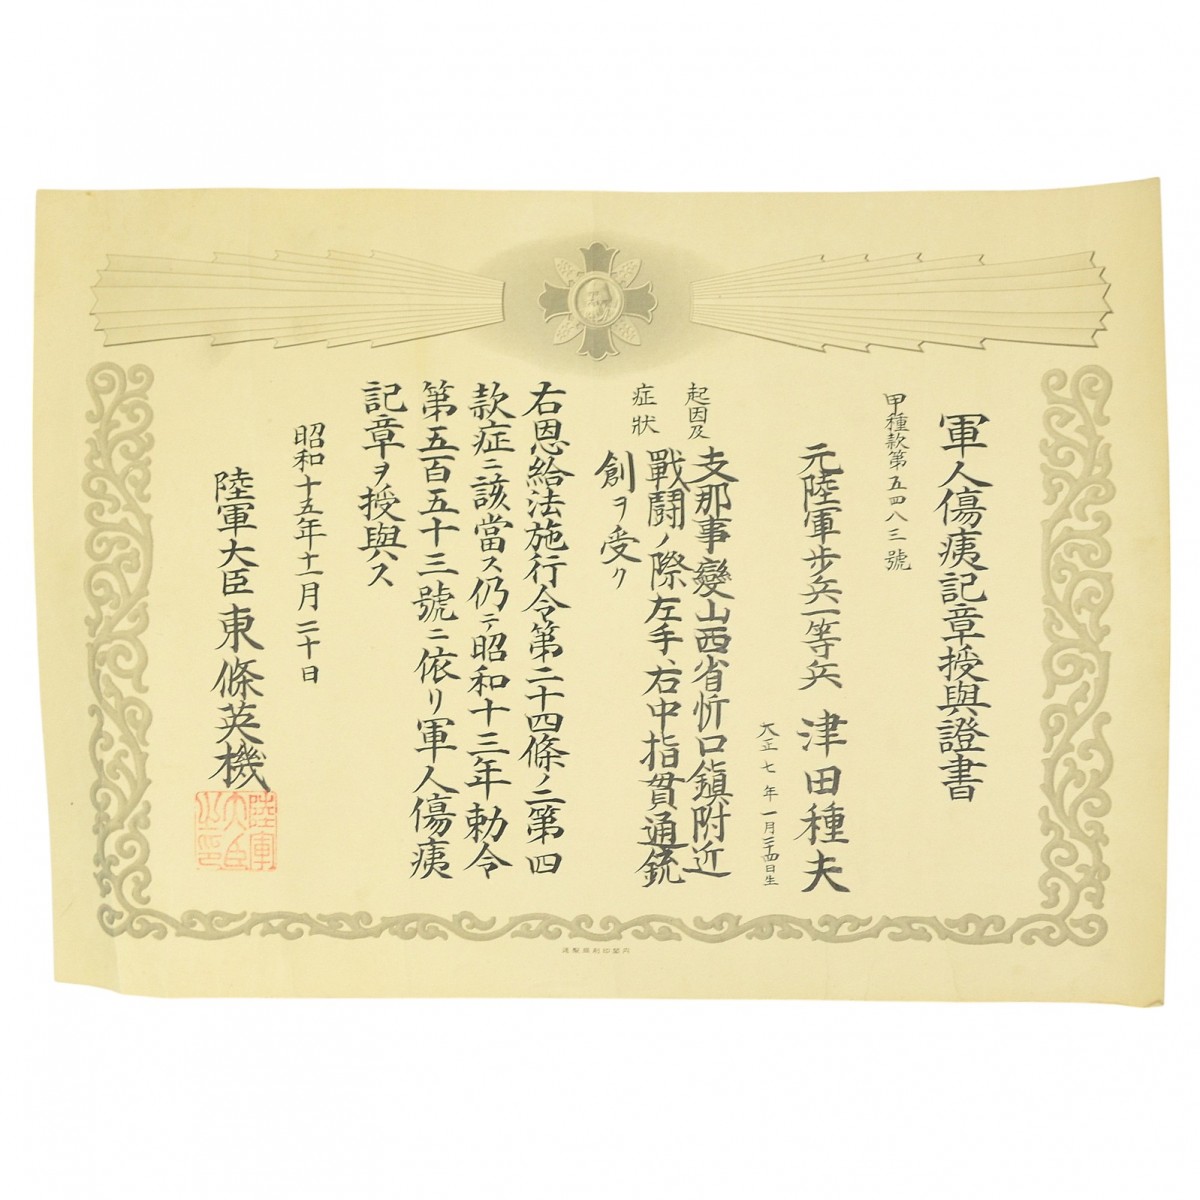 軍人傷痍記章授與證書
甲種款第五四八三號
元陸軍步兵一等兵 津田種夫
大正七年一月二十四日生
起因及
症狀
支那事變山西省忻口鎮附近
戰鬪ノ際左手右中指貫通銃
創ヲ受ク
右恩給法施行令第二十四條ノ二第四
款症ニ該當ス仍テ昭和十三年勅令
第五百五十三號ニ依リ軍人傷痍
記章ヲ授與ス
昭和十五年十一月二十日
陸軍大臣 東條英機
陸軍
大臣
之印
內閣印刷局製造